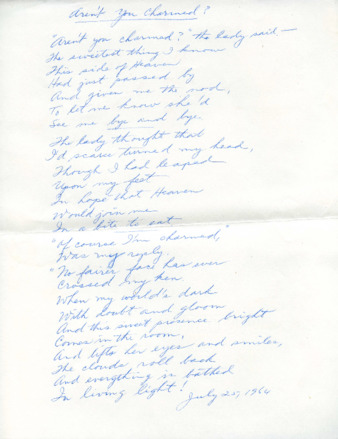 Aren't You Charmed?
"Aren't you charmed?" the lady said—
The sweetest thing I know
This side of Heaven
Had just passed by
And given me the nod,
To let me know she'd
See me bye and bye.
The lady thought that
I'd scarce turned my head,
Though I had leaped
Upon my feet
In hope that Heaven
Would join me
In a bite to eat.
"Of course I'm charmed,"
Was my reply.
"No fairer face has ever
Crossed my ken
When my world's dark
With doubt and gloom
And this sweet presence bright
Comes in the room,
And lifts her eyes and smiles,
The clouds roll back
And everything is bathed
In living light!
July 25, 1964